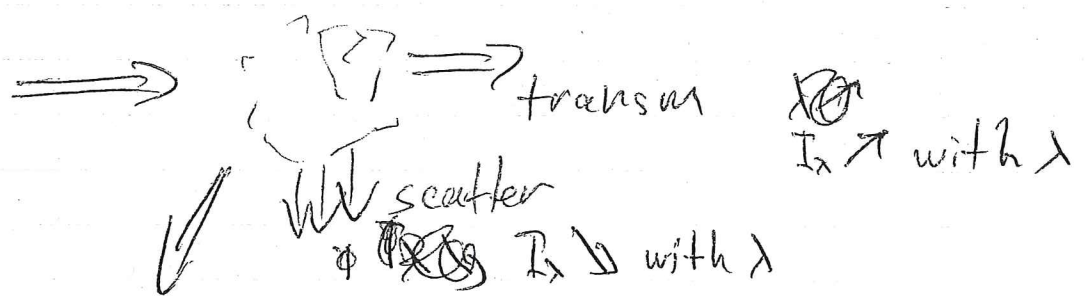 transm
I_λ ↗ with λ
scatter
I_λ ↘ with λ